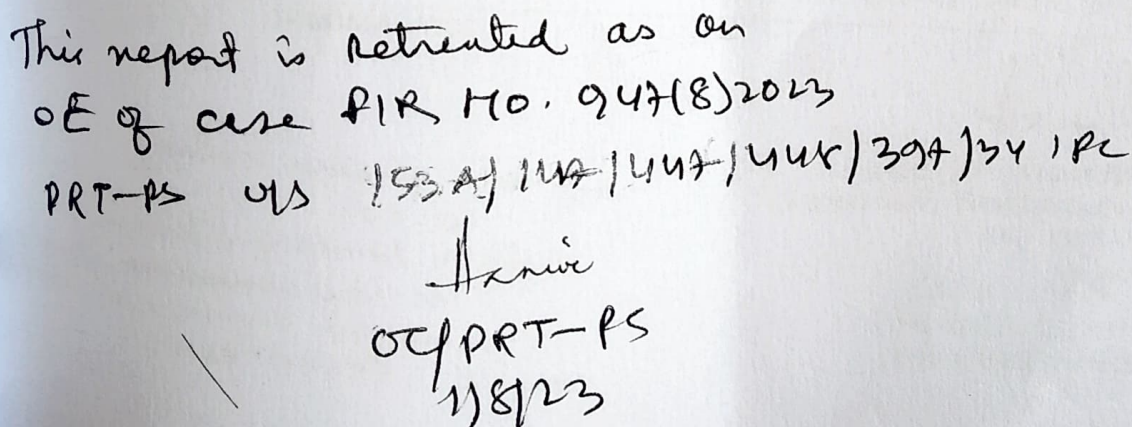 This report is retreated as on
OE of case FIR NO. 947(8)2023
PRT-PS u/s 153A/147/447/448/397/34 IPC
OC/PRT-PS
1/8/23